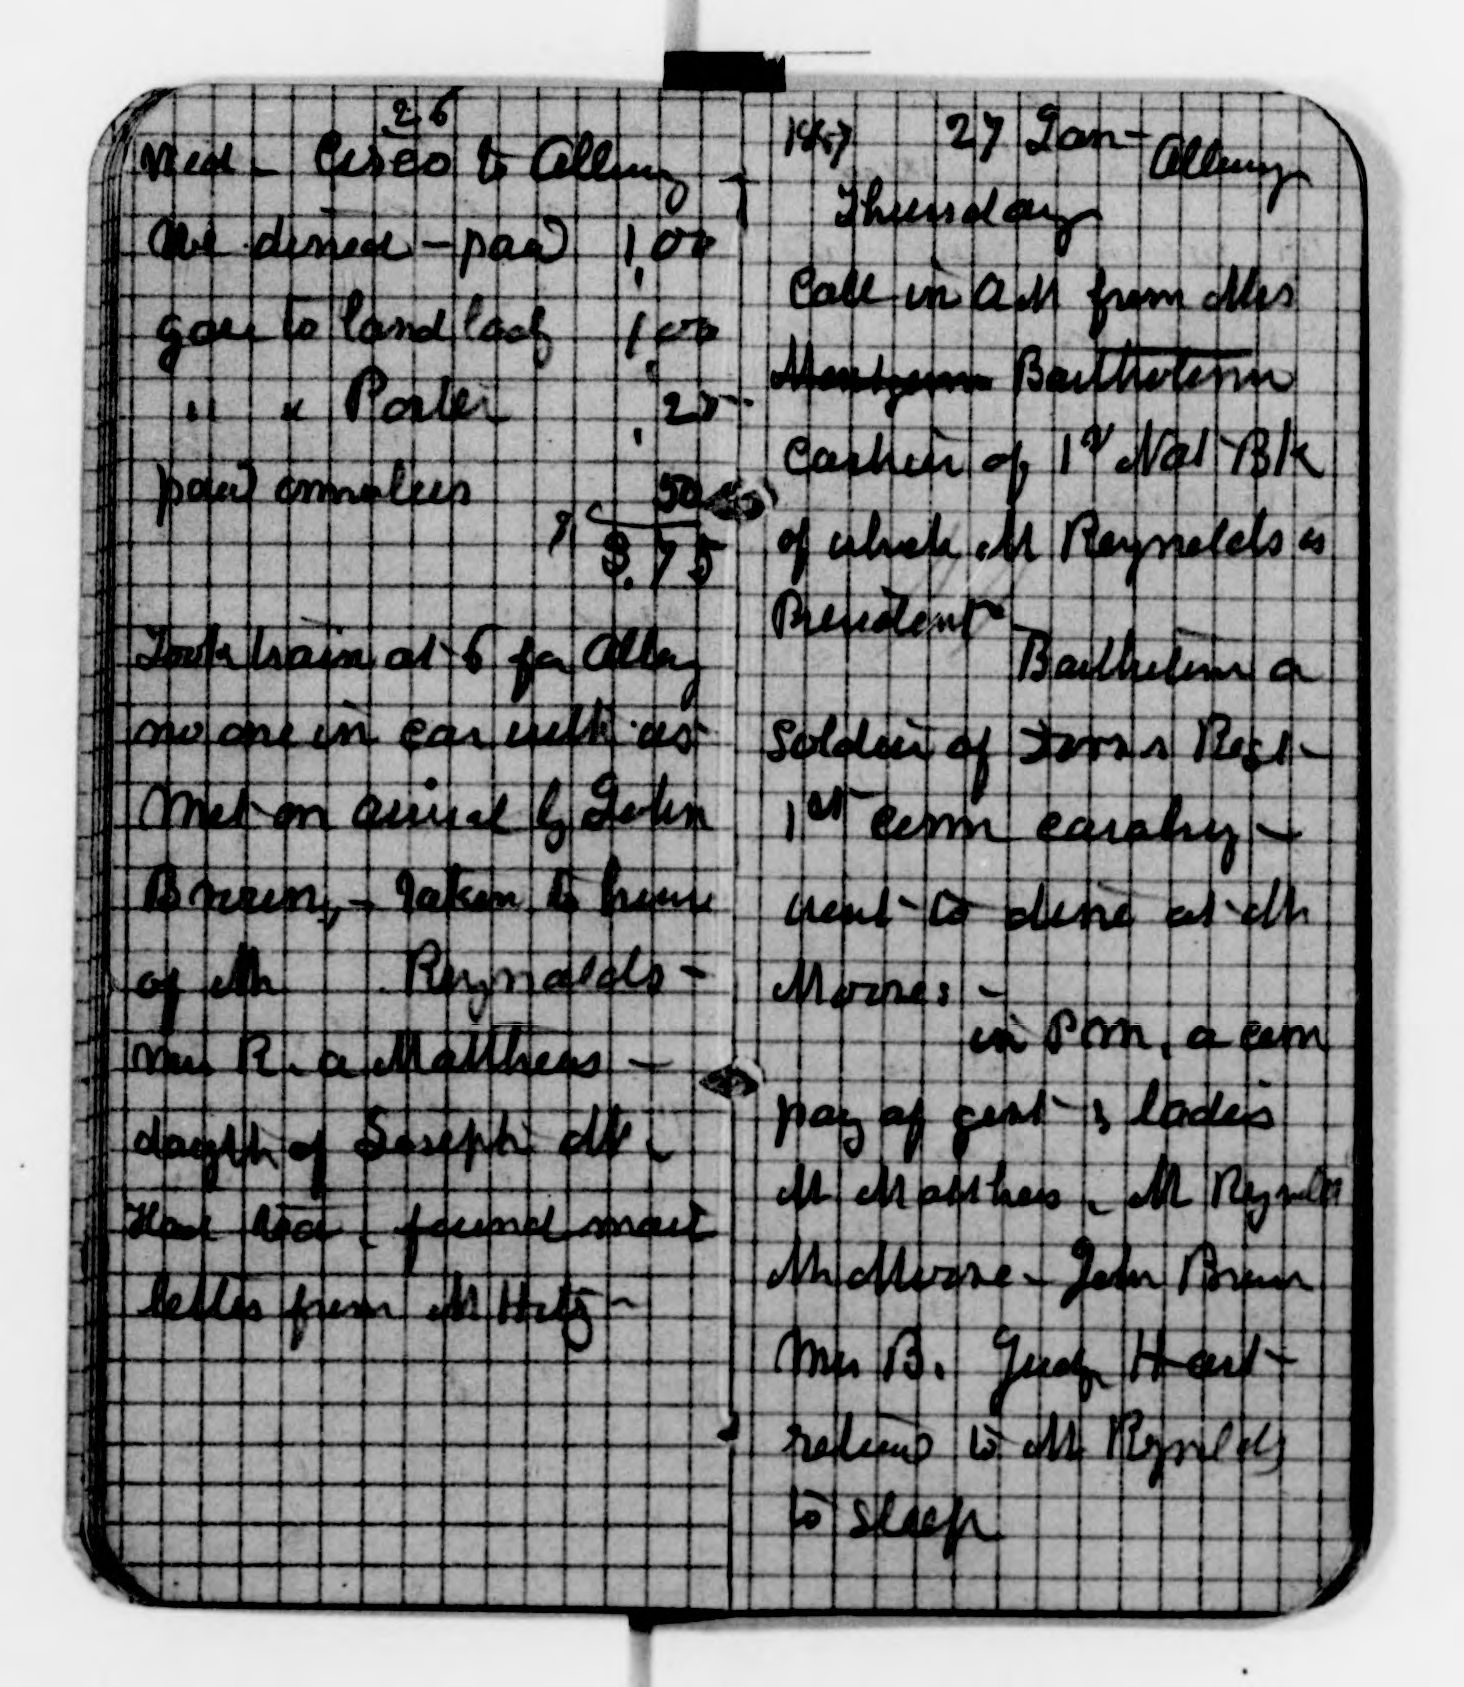 26
Wed - Cisco to Albany
We dined - paid 1,00
gave to land lady 1,00
" " Porter ,25
paid omnibus 50
$ 3.75
Took train at 6 for Albany
no one in car with us
Met on arrival by John
Brown, - taken to house
of Mr Reynolds -
Mrs R. a Matthews -
daughtr of Joseph M.
Had tea, found mail
letters from Mr Hitz -
1887 27 Jan - Albany
Thursday
Call in AM from Mrs
Bartholomew
Cashier of 1st Nat Bk
of which Mr Reynolds is
President -
Bartholomew a
Soldier of Regt -
1st Conn cavalry -
went to dine at Mr
Moores -
in PM, a com
pay of gent & ladies
Mr Matthews, Mr Reynolds
Mr Moore - John Brown
Mrs B. Judge Hart -
return to Mr Reynolds
to sleep